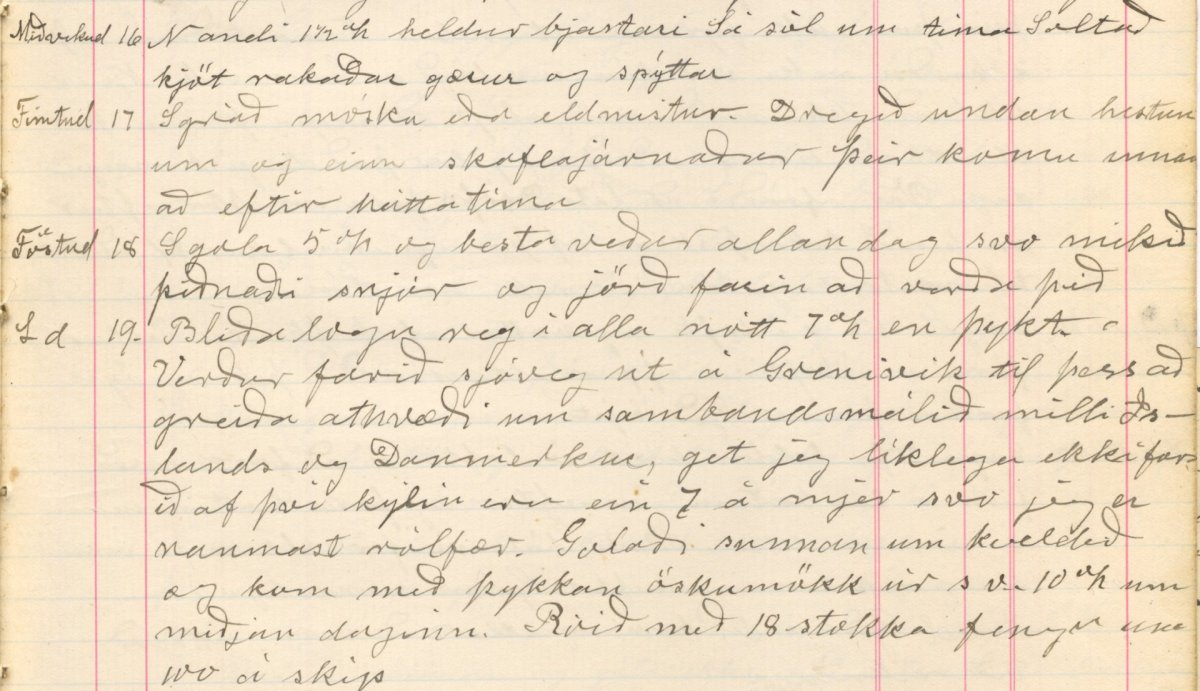 Miðvikud 16 N andi 1½°h heldur bjartari Sá sól um tíma Saltað
kjöt rakaðar gærur og spýttar
Fimtud 17 S gráð móska eða eldmistur. Dregið undan hestun
um og einn skaflajárnaður þeir komu innan
að eftir háttatíma
Föstud 18 S gola 5°h og besta veður allan dag svo mikið
þiðnaði snjór og jörð farin að verða þíð
L d 19. Blíða logn veg í alla nótt 7°h en þykt.
Verður farið sjóveg út á Grenivík til þess að
greiða athvæði um sambandsmálið milli Ís-
lands og Danmerkur, get jeg líklega ekki far-
ið af því kýlin eru ein 7 á mjer svo jeg er
naumast rólfær. Golaði sunnan um kveldið
og kom með þykkan öskumökk úr s v. 10°h um
miðjan daginn. Róið með 18 stokka fengu um
100 á skip